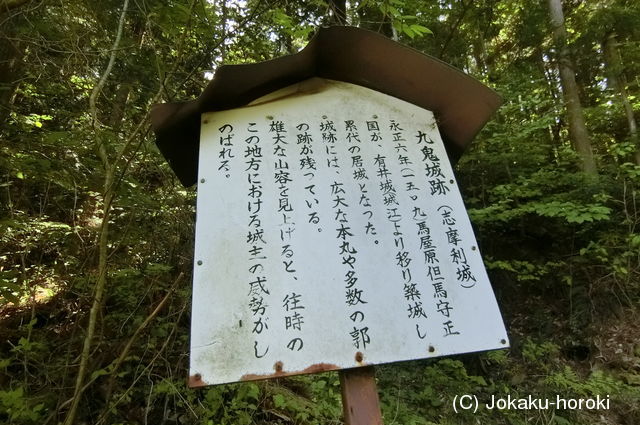 九鬼城跡（志摩利城）
永正六年（一五〇九馬屋原但馬守正
国が、有井城城江より移り築城し
累代の居城となった。
城跡には、広大な本丸や多数の郭
の跡が残っている。
雄大な山容を見上げると、往時の
この地方における城主の威勢がし
のばれる。
(C) Jokaku-horoki